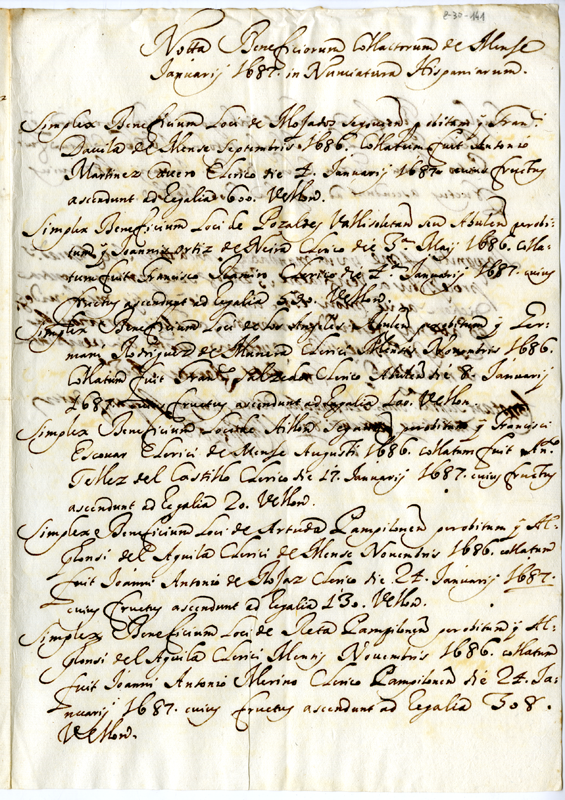 Z-30-141
Notta Beneficiorum Collactorum de Mense
Januarij 1687. in Nunciatura Hispaniarum.
Simplex Beneficium Loci de Mojados Segovien. per obitum Fran.
Davila de Mense Septembris 1686. Collatum fuit Antonio
Martinez Clerico die 4. Januarij 1687. cuius fructus
ascendunt ad Regalia 600. Vellon.
Simplex Beneficium Loci de Pozaldes Vallisoletan seu Abulen per obi-
tum Joannis Ortiz de Neira Clerico die 3. Maij 1686. Colla-
tum fuit Francisco Clerico die 4. Januarij 1687. cuius
fructus ascendunt ad Regalia 330. Vellon.
Simplex Beneficium Loci de los Angeles Abulen per obitum Ger-
mani Rodriguez de Clerici Mensis Novembris 1686.
Collatum fuit Clerico Abulen die 8. Januarij
1687. cuius fructus ascendunt ad Regalia Vellon.
Simplex Beneficium Loci de Aillon per obitum Francisci
Escouar Clerici de Mense Augusti 1686. collatum fuit
Tellez del Castillo Clerico die 17. Januarij 1687. cuius fructus
ascendunt ad Regalia 20. Vellon.
Simplex Beneficium Loci de Pampilonen per obitum Al-
phonsi del Aguila Clerici de Mense Novembris 1686. collatum
fuit Joanni Antonio de Rojaz Clerico die 24. Januarij 1687.
cuius fructus ascendunt ad Regalia 130. Vellon.
Simplex Beneficium Loci de Reta Pampilonen per obitum Al-
phonsi del Aguila Clerici Mensis Novembris 1686. collatum
fuit Joanni Antonio Merino Clerico Pampilonen die 24. Ja-
nuarij 1687. cuius fructus ascendunt ad Regalia 308.
Vellon.